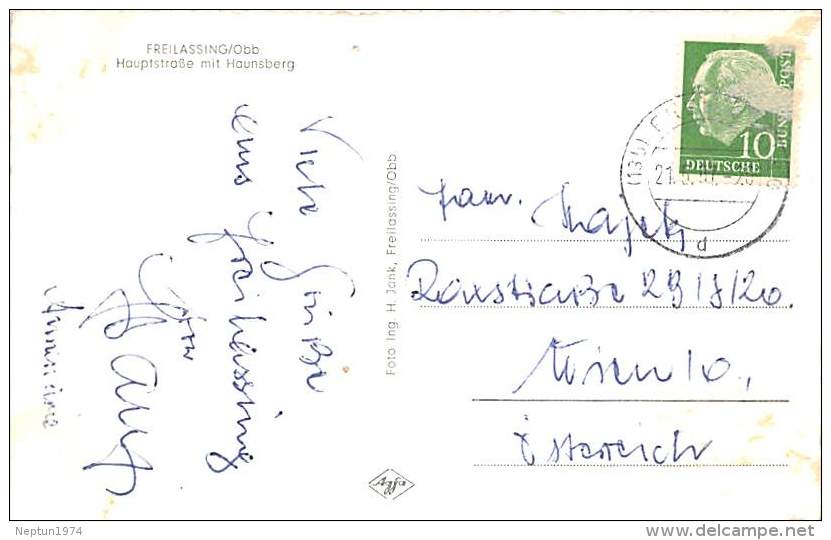 FREILASSING/Obb.
Hauptstraße mit Haunsberg
Viele Grüße
aus Freilassing
Foto Ing. H. Jank, Freilassing/Obb
BUNDESPOST
10
DEUTSCHE
(13b)
21.
d
Fam.
Raxstraße 29/8/20.
Wien 10.,
Österreich
Agfa
Neptun1974
www.delcampe.net